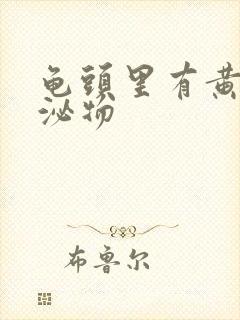 龟頭里有黄
泌物
布鲁尔